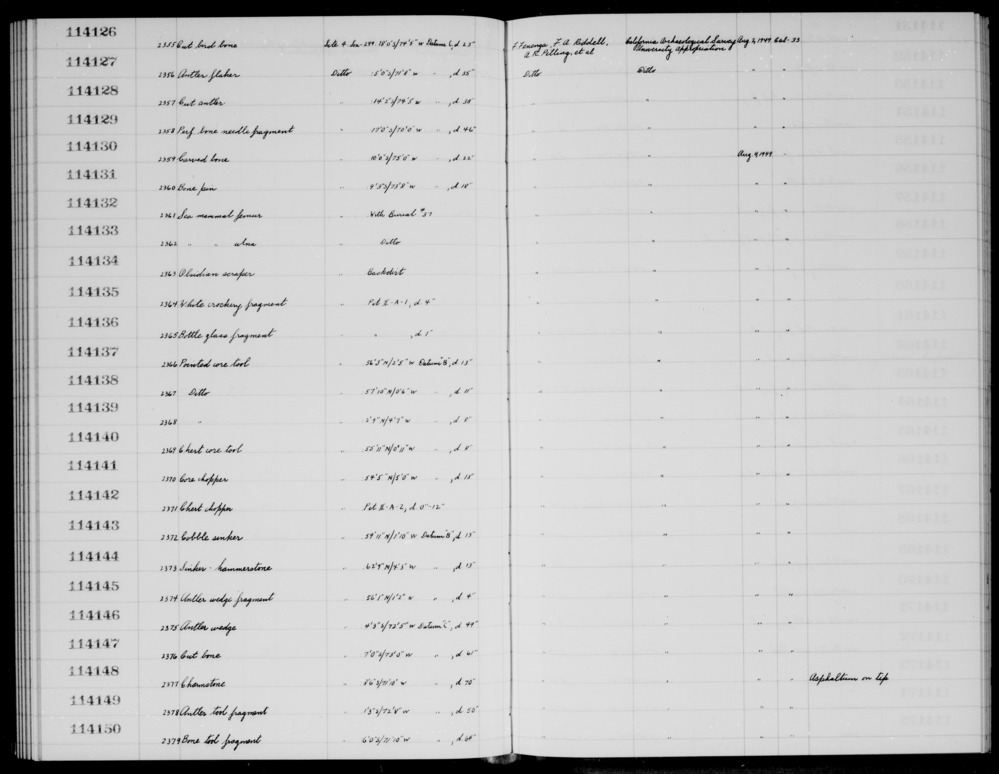 114126
2355 Cut bird bone Site 4-Sca-299. W Datum C, d 23" F. Fenenga, F. A. Riddell, A. R. Pilling, et al California Archaeological Survey University Appropriation Aug 3, 1949 Cat-53
114127
2356 Antler flaker Ditto W " , d 35" Ditto Ditto " "
114128
2357 Cut antler " W " , d 38" " " " "
114129
2358 Perf. bone needle fragment " W " , d 46" " " " "
114130
2359 Carved bone " W " , d 22" " " Aug 4, 1949 "
114131
2360 Bone pin " W " , d 18" " " " "
114132
2361 Sea mammal femur " With Burial #37 " " " "
114133
2362 " " ulna " Ditto " " " "
114134
2363 Obsidian scraper " Backdirt " " " "
114135
2364 White crockery fragment " Pit II-A-1, d. 4" " " " "
114136
2365 Bottle glass fragment " " , d 5" " " " "
114137
2366 Pointed core tool " 56'5"N/2'5" W Datum "B", d 13" " " " "
114138
2367 Ditto " 57'10"N/0'6" W " , d 11" " " " "
114139
2368 " " 2'9"N/4'7" W " , d 8" " " " "
114140
2369 Chert core tool " 55'11"N/0'11" W " , d 8" " " " "
114141
2370 Core chopper " 54'5"N/5'0" W " , d 15" " " " "
114142
2371 Chert chopper " Pit II-A-2, d. 0"-12" " " " "
114143
2372 Cobble sinker " 59'11"N/1'10" W Datum "B", d 13" " " " "
114144
2373 Sinker - hammerstone " 62'9"N/4'5" W " , d 13" " " " "
114145
2374 Antler wedge fragment " 56'1"N/1'2" W " , d 4" " " " "
114146
2375 Antler wedge " 4'3"S/72'5" W Datum "C", d 44" " " " "
114147
2376 Cut bone " W " , d " " " "
114148
2377 Charmstone " W " , d 70" " " " " Asphaltum on tip
114149
2378 Antler tool fragment " W " , d 50" " " " "
114150
2379 Bone tool fragment " W " , d 68" " " " "